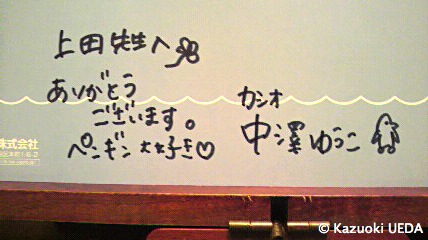 上田先生へ
ありがとう
ございます。
ペンギン大好き♡
カシオ
中澤ゆうこ
株式会社
© Kazuoki UEDA